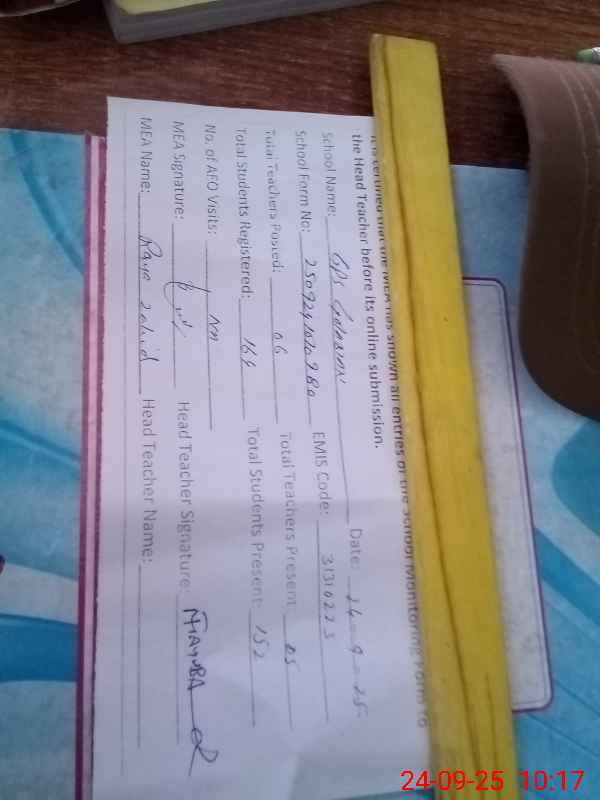 It is certified that the MEA has shown all entries of the School Monitoring Form to
the Head Teacher before its online submission.
School Name: GPS Date: 24-9-25
School Form No: EMIS Code: 31310223
Total Teachers Posted: 06 Total Teachers Present: 05
Total Students Registered: 164 Total Students Present: 152
No. of AEO Visits:
MEA Signature: Head Teacher Signature:
MEA Name: Rana Zahid Head Teacher Name:
24-09-25 10:17